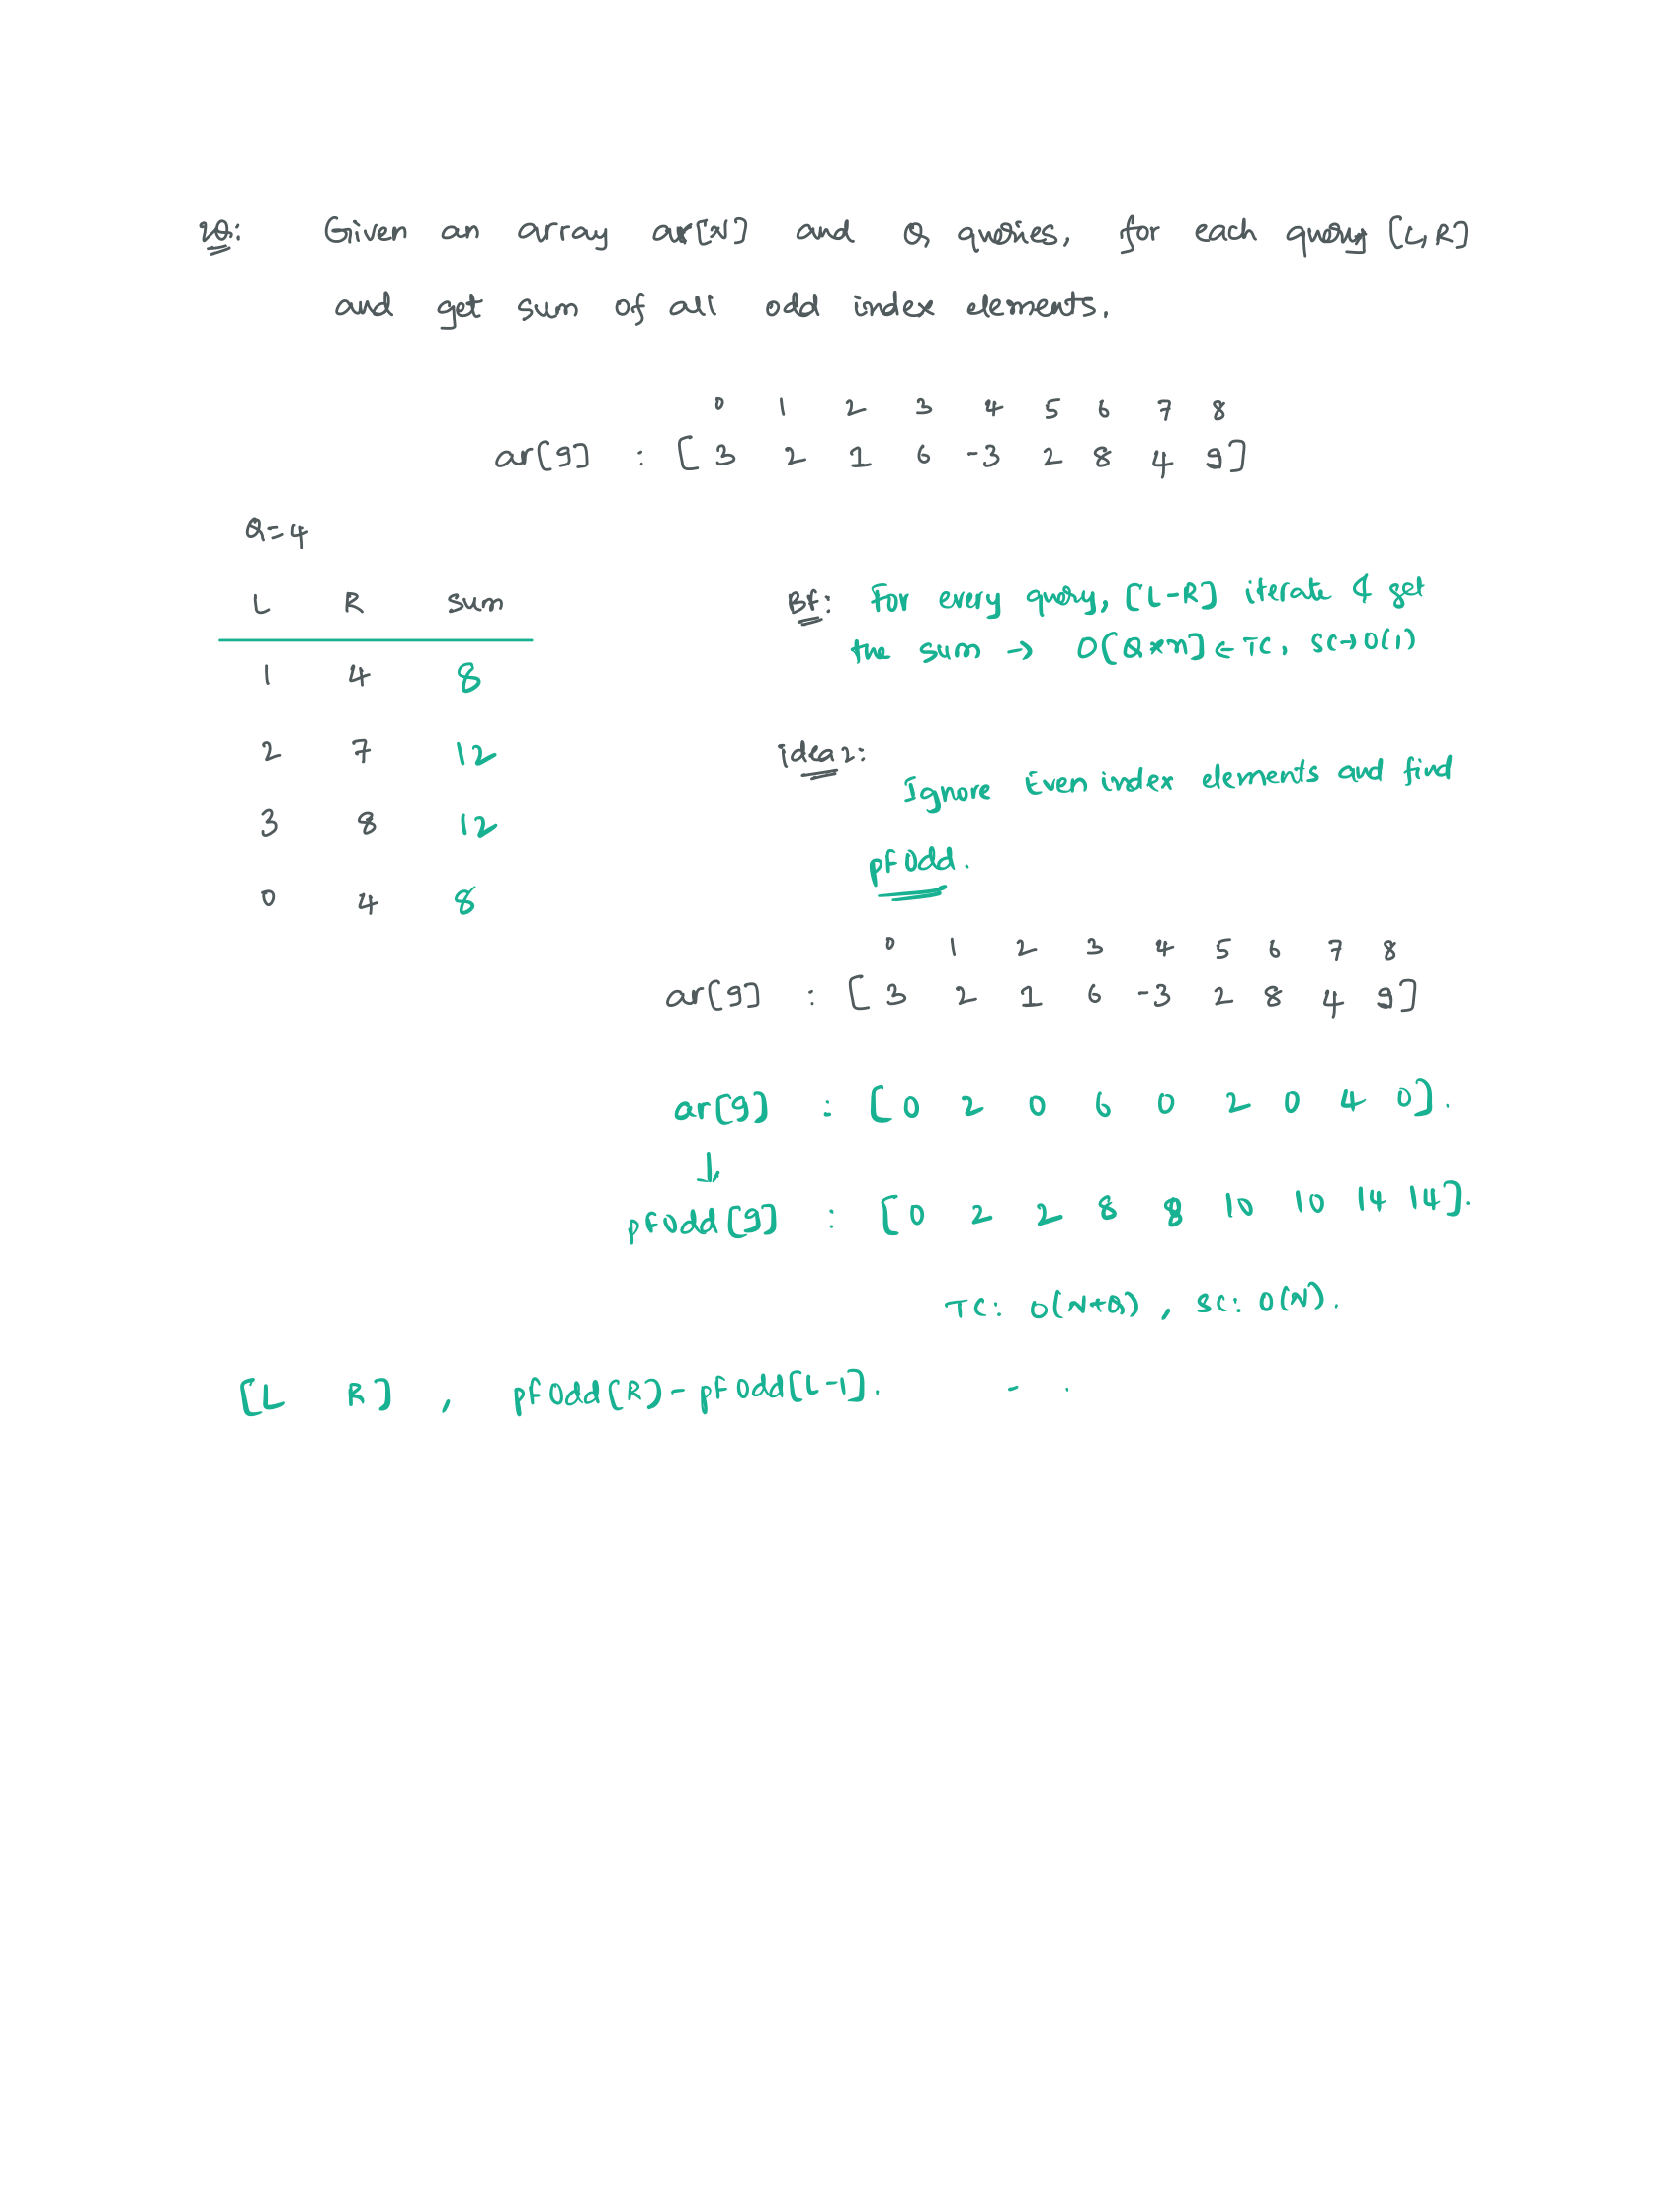 2Q: Given an array ar[N] and Q queries, for each query [L,R]
and get sum of all odd index elements.
0 1 2 3 4 5 6 7 8
ar[9] : [ 3 2 1 6 -3 2 8 4 9]
Q=4
L R sum
1 4 8
2 7 12
3 8 12
0 4 8
Bf: For every query, [L-R] iterate & get
the sum → O(Q*n] ← TC, SC→O(1)
idea 2:
Ignore Even index elements and find
pfOdd.
0 1 2 3 4 5 6 7 8
ar[9] : [ 3 2 1 6 -3 2 8 4 9]
ar[9] : [ 0 2 0 6 0 2 0 4 0].
↓
pfOdd[9] : [ 0 2 2 8 8 10 10 14 14].
TC: O(N+Q) , SC: O(N).
[L R] , pfOdd[R) - pfOdd[L-1].